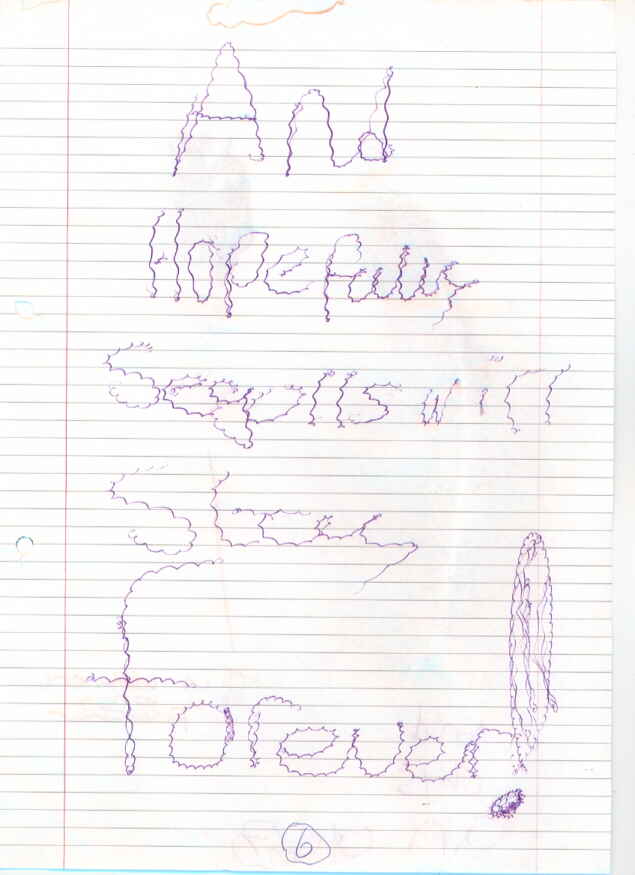 And
Hopefully
Seagulls will
Stay
Forever!
6